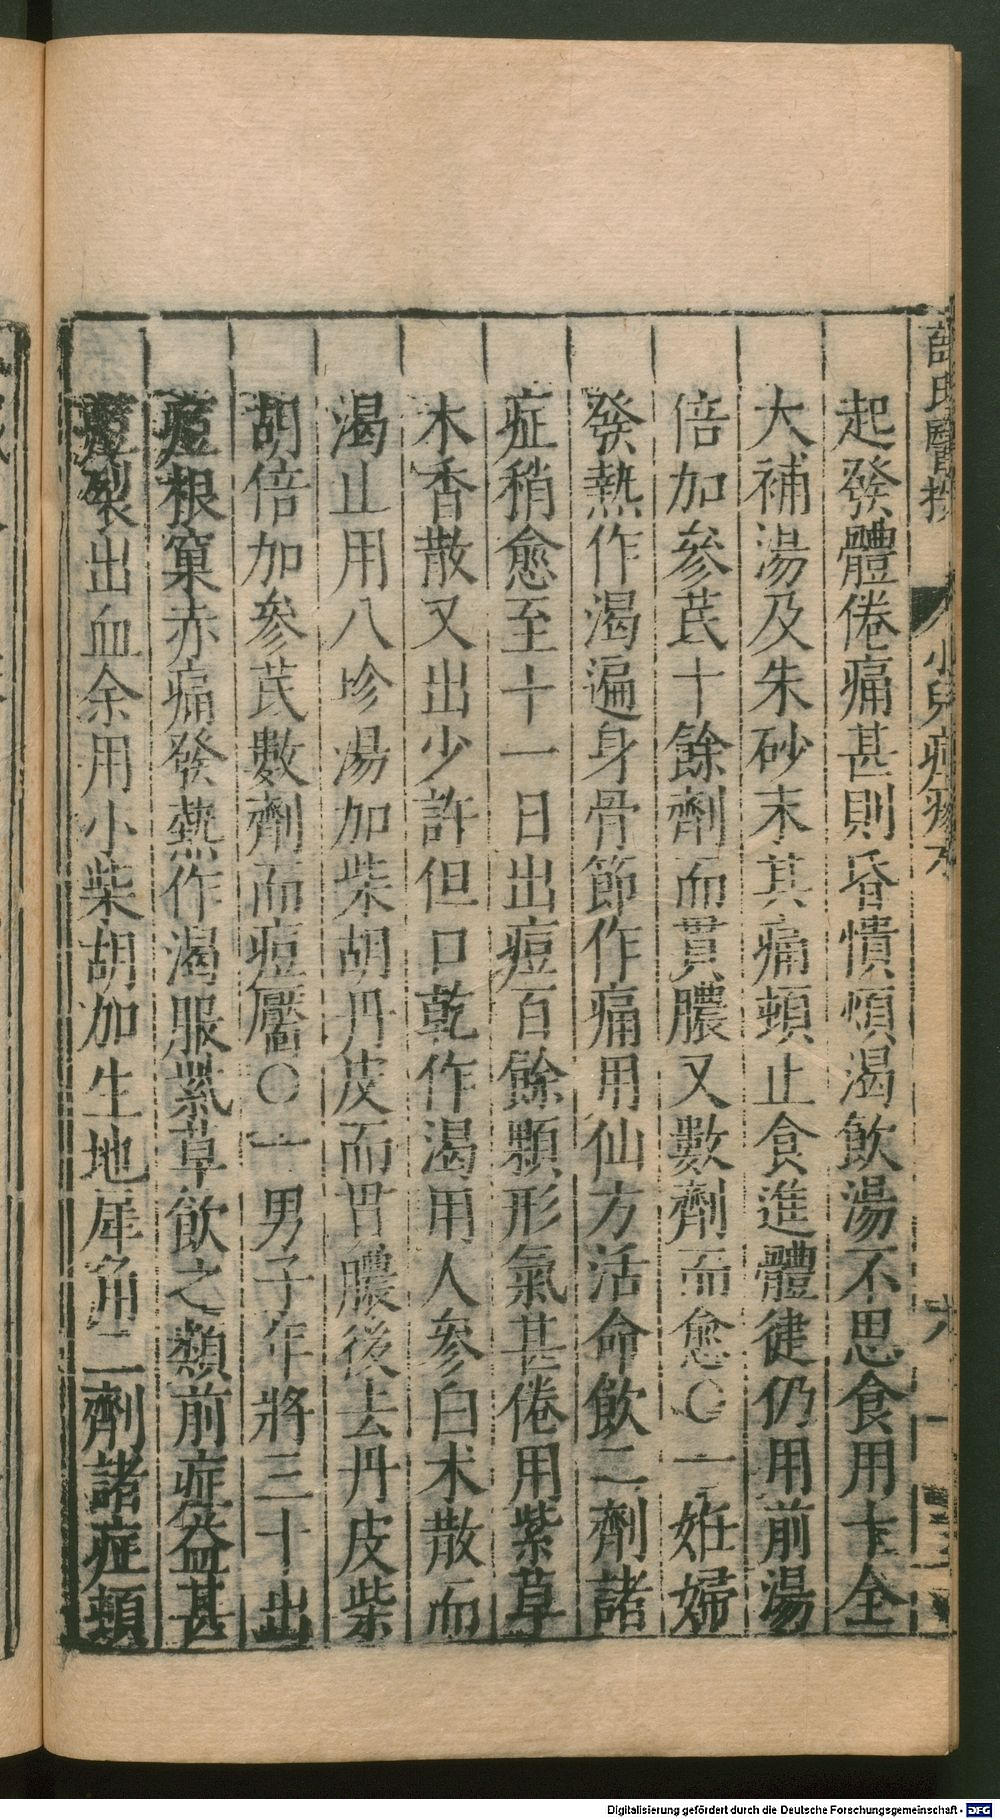 起發體倦痛甚則昏憒煩渴飲湯不思食用十全
大補湯及朱砂末其痛頓止食進體健仍用前湯
倍加參芪十餘劑而貫膿又數劑而愈〇一姙婦
發熱作渴遍身骨節作痛用仙方活命飲二劑諸
症稍愈至十一日出痘百餘顆形氣甚倦用紫草
木香散又出少許但口乾作渴用人參白朮散而
渴止用八珍湯加柴胡丹皮而貫膿後去丹皮柴
胡倍加參芪數劑而痘靨〇一男子年將三十出
痘根窠赤痛發熱作渴服紫草飲之類前症益甚
痘裂出血余用小柴胡加生地犀角二劑諸症頓
薛氏醫按 小兒痘疹 六
Digitalisierung gefördert durch die Deutsche Forschungsgemeinschaft - DFG